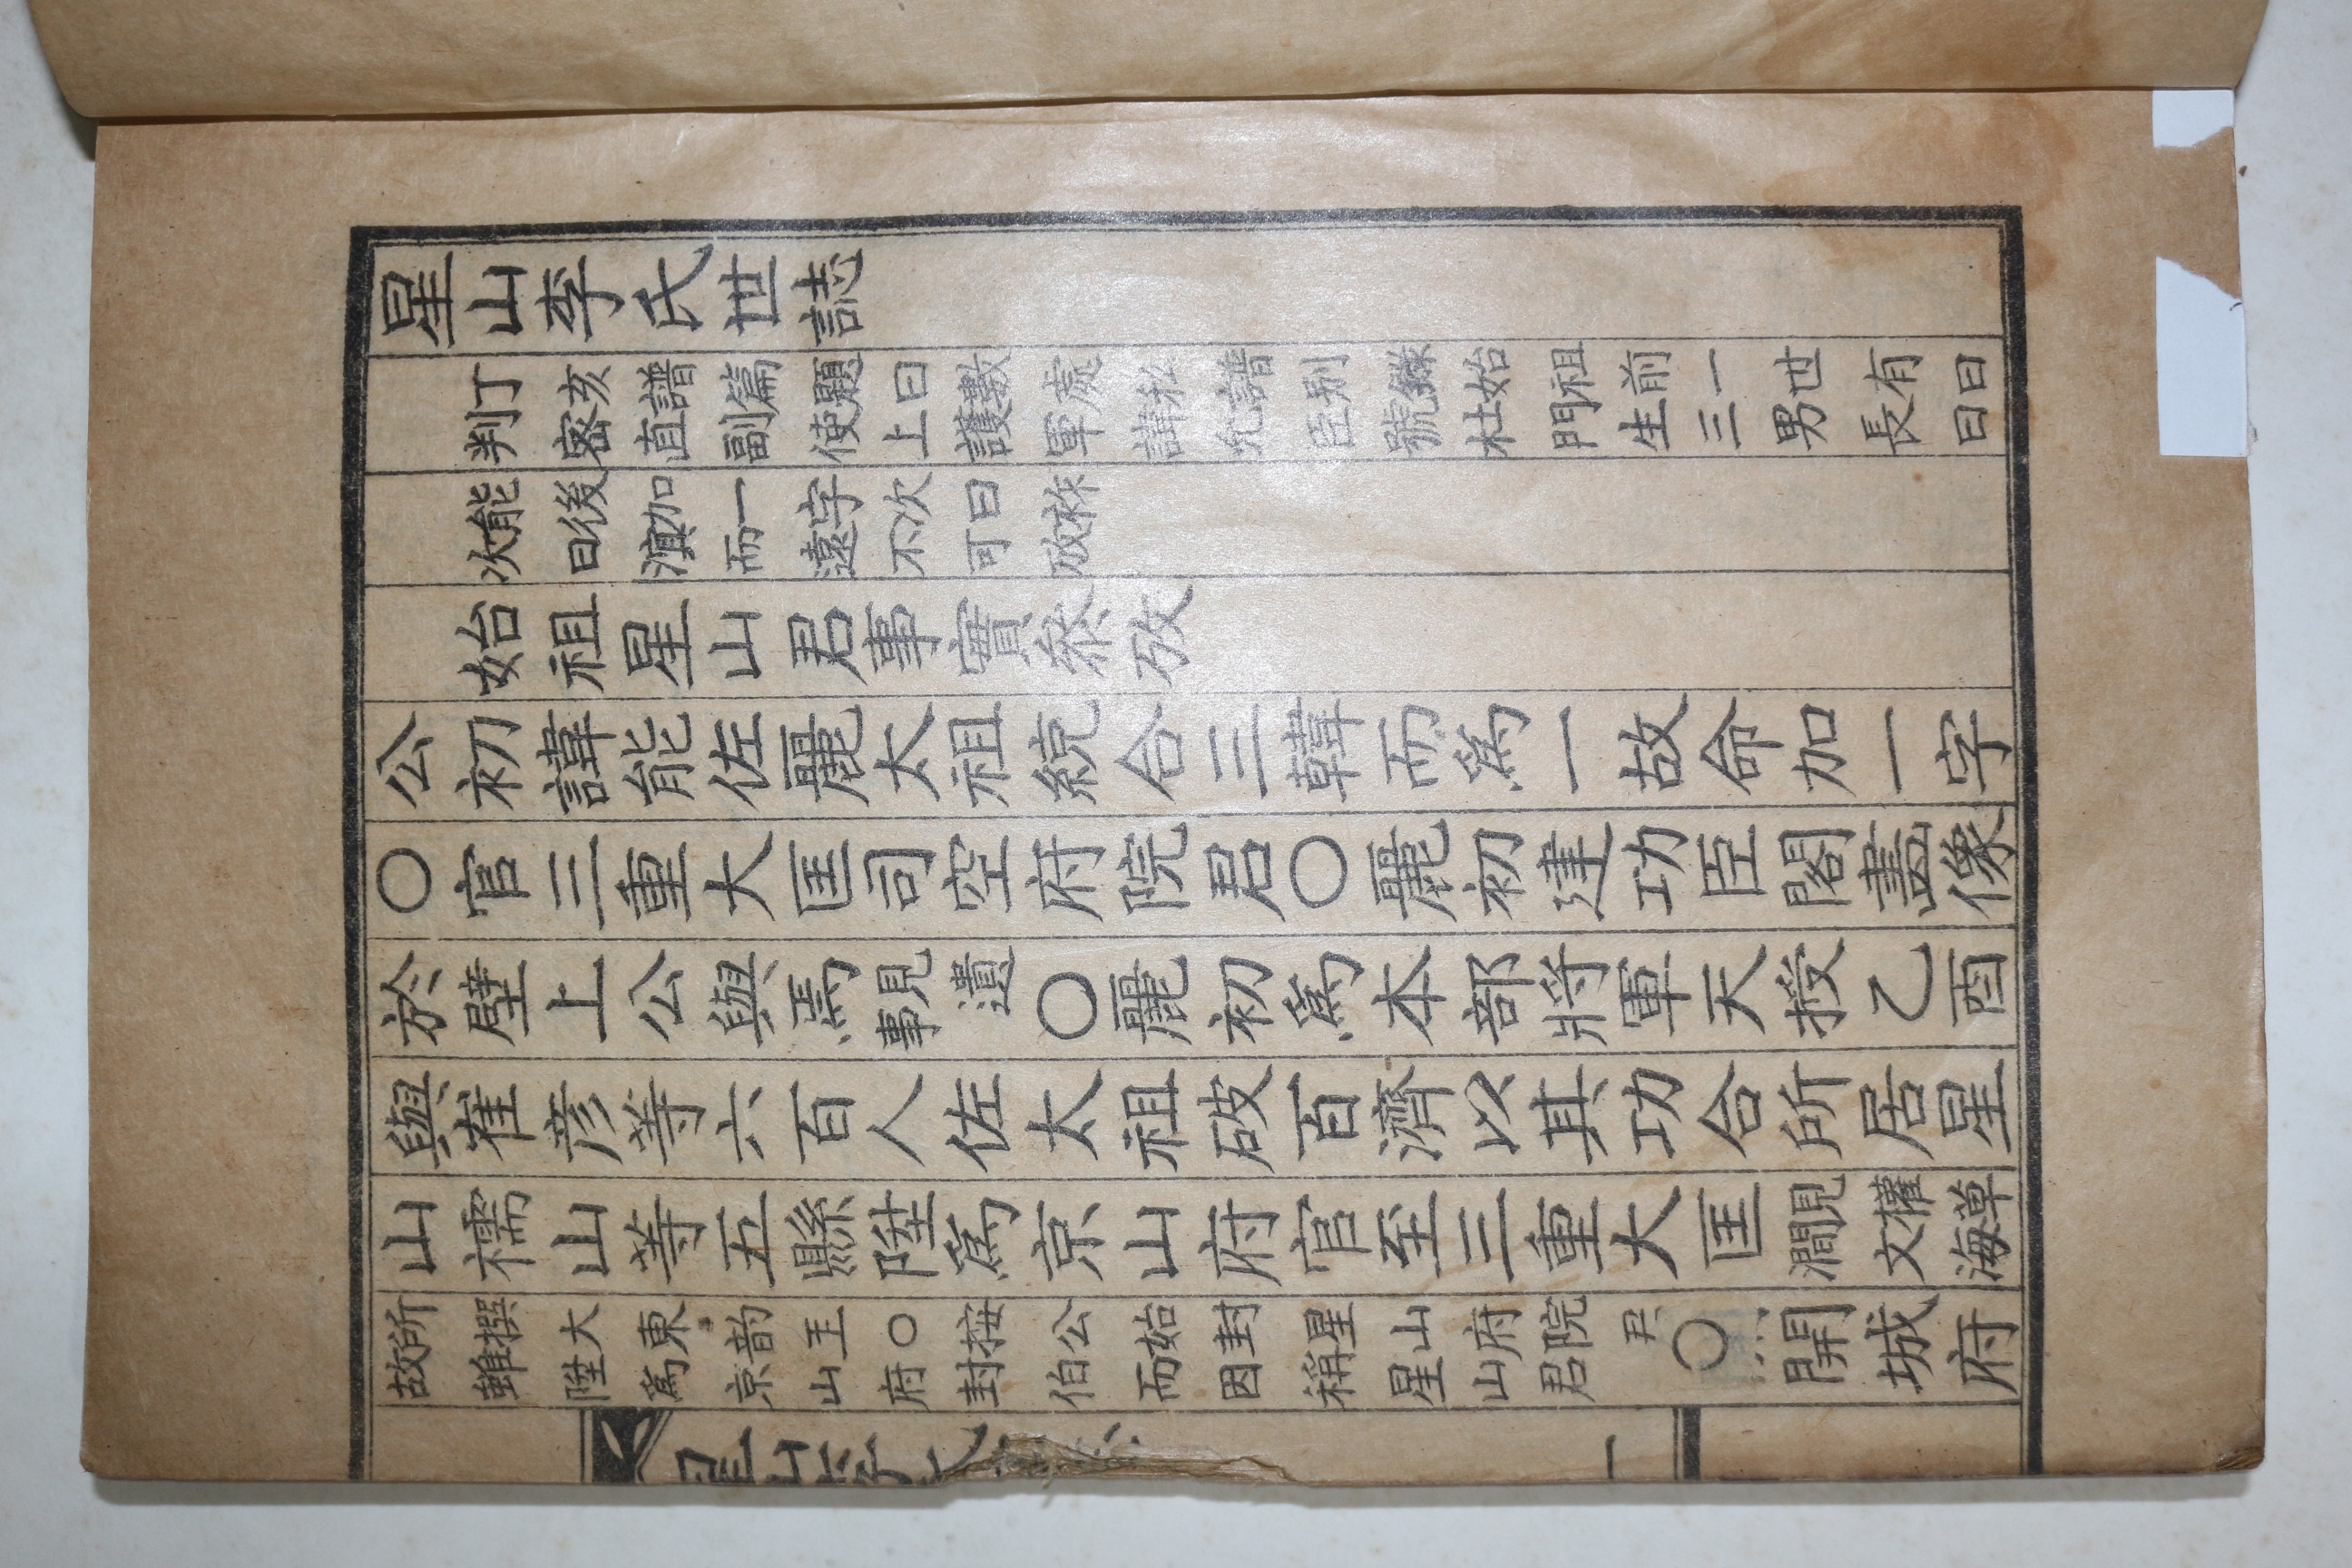 星山李氏世誌
丁亥譜篇題曰數處私譜別錄始祖前一世有曰
判密直副使上護軍諱允臣號杜門生三男長曰
能後加一字次曰祚
次曰滇而遠不可攷
始祖星山君事實參攷
公初諱能佐麗太祖統合三韓而爲一故命加一字
〇官三重大匡司空府院君〇麗初建功臣閣畵像
於壁上公與焉見遺事〇麗初爲本部將軍天授乙酉
與崔彦等六百人佐太祖破百濟以其功合所居星
山襦山等五縣陞爲京山府官至三重大匡見權草澗文海
所撰大東韵玉〇按公始封星山府院君
故雖陞爲京山府封伯而因稱星山君〇開城府
星山李氏
一